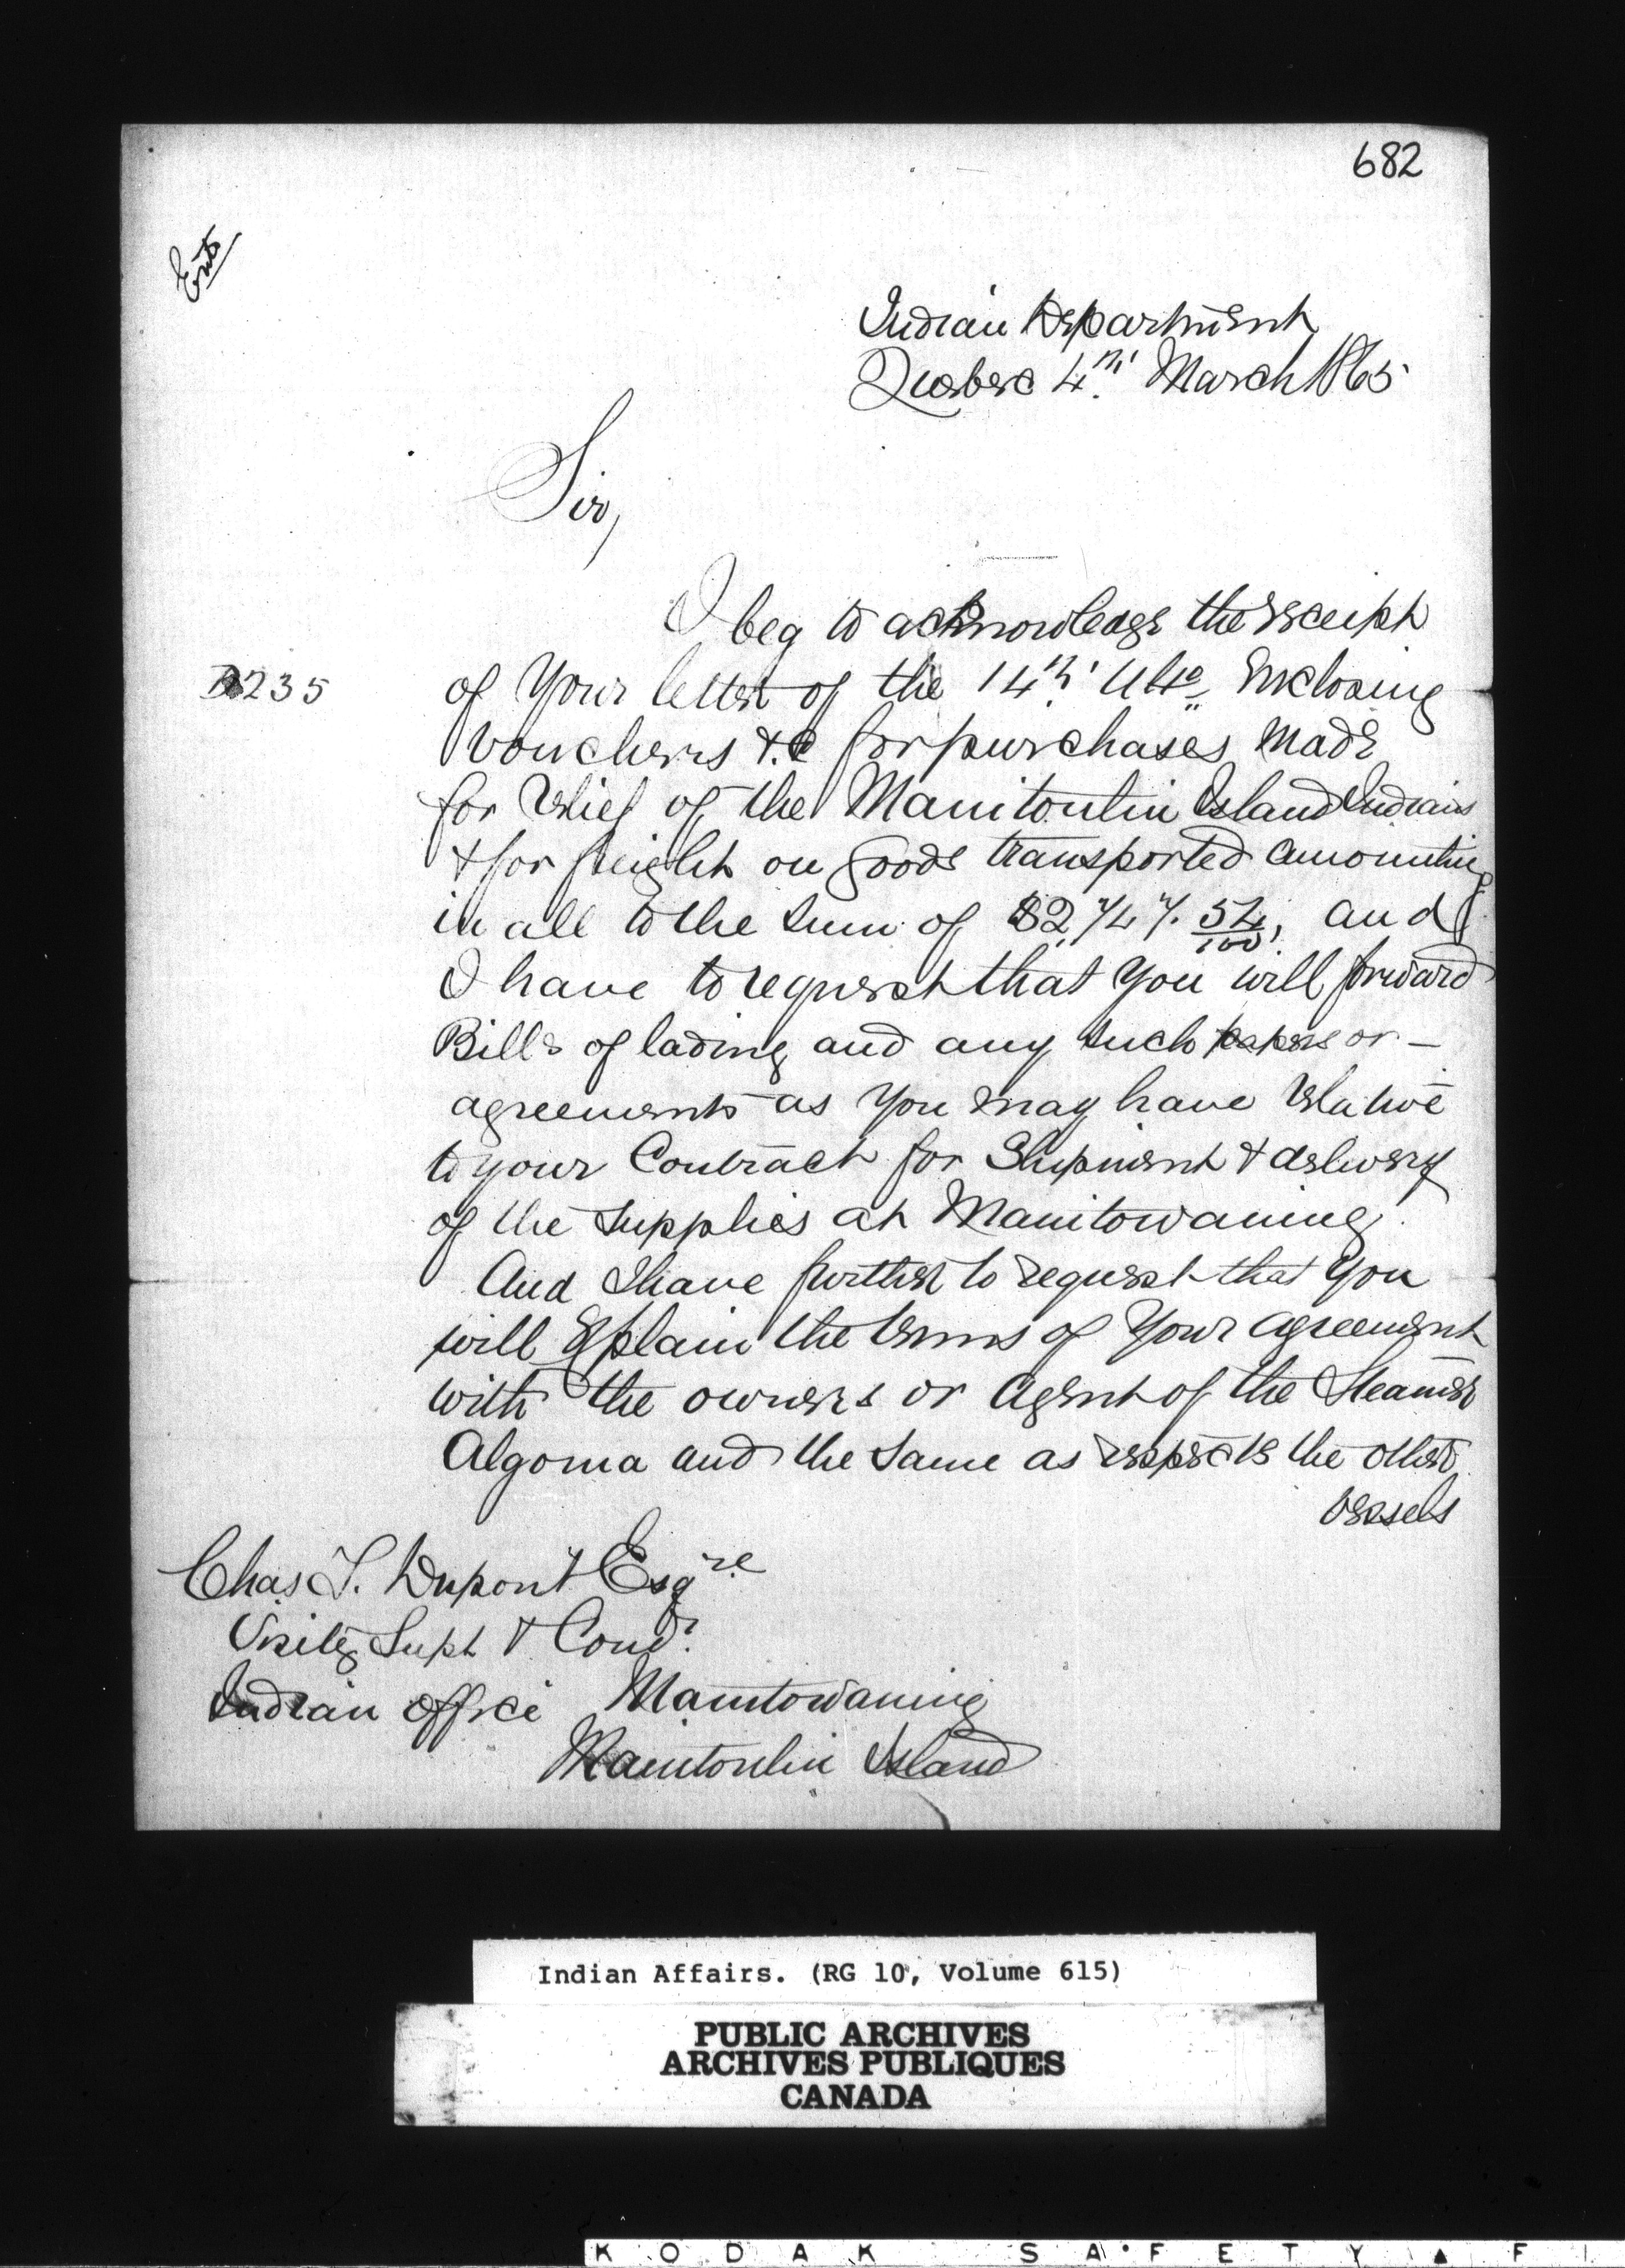 682
Ent
Indian Department
Quebec 4th March 1865
Sir,
I beg to acknowledge the receipt
235
of Your letter of the 14th Ulto Enclosing
Vouchers &c for purchases made
for relief of the Manitoulin Island Indians
& for freight on Goods transported amounting
in all to the Sum of 54/100, and
I have to request that You will forward
Bills of lading and any such papers or —
agreements as You may have relative
to your Contract for Shipment & delivery
of the Supplies at Manitowaning.
And I have further to request that You
will Explain the terms of Your agreement
with the owners or Agent of the Steamer
Algoma and the Same as respects the other
vessels
Chas T. Dupont Esqre
Visitg Supt & Comr
Indian Office Manitowaning
Manitoulin Island
Indian Affairs. (RG 10, Volume 615)
PUBLIC ARCHIVES
ARCHIVES PUBLIQUES
CANADA
KODAK SAFETY F